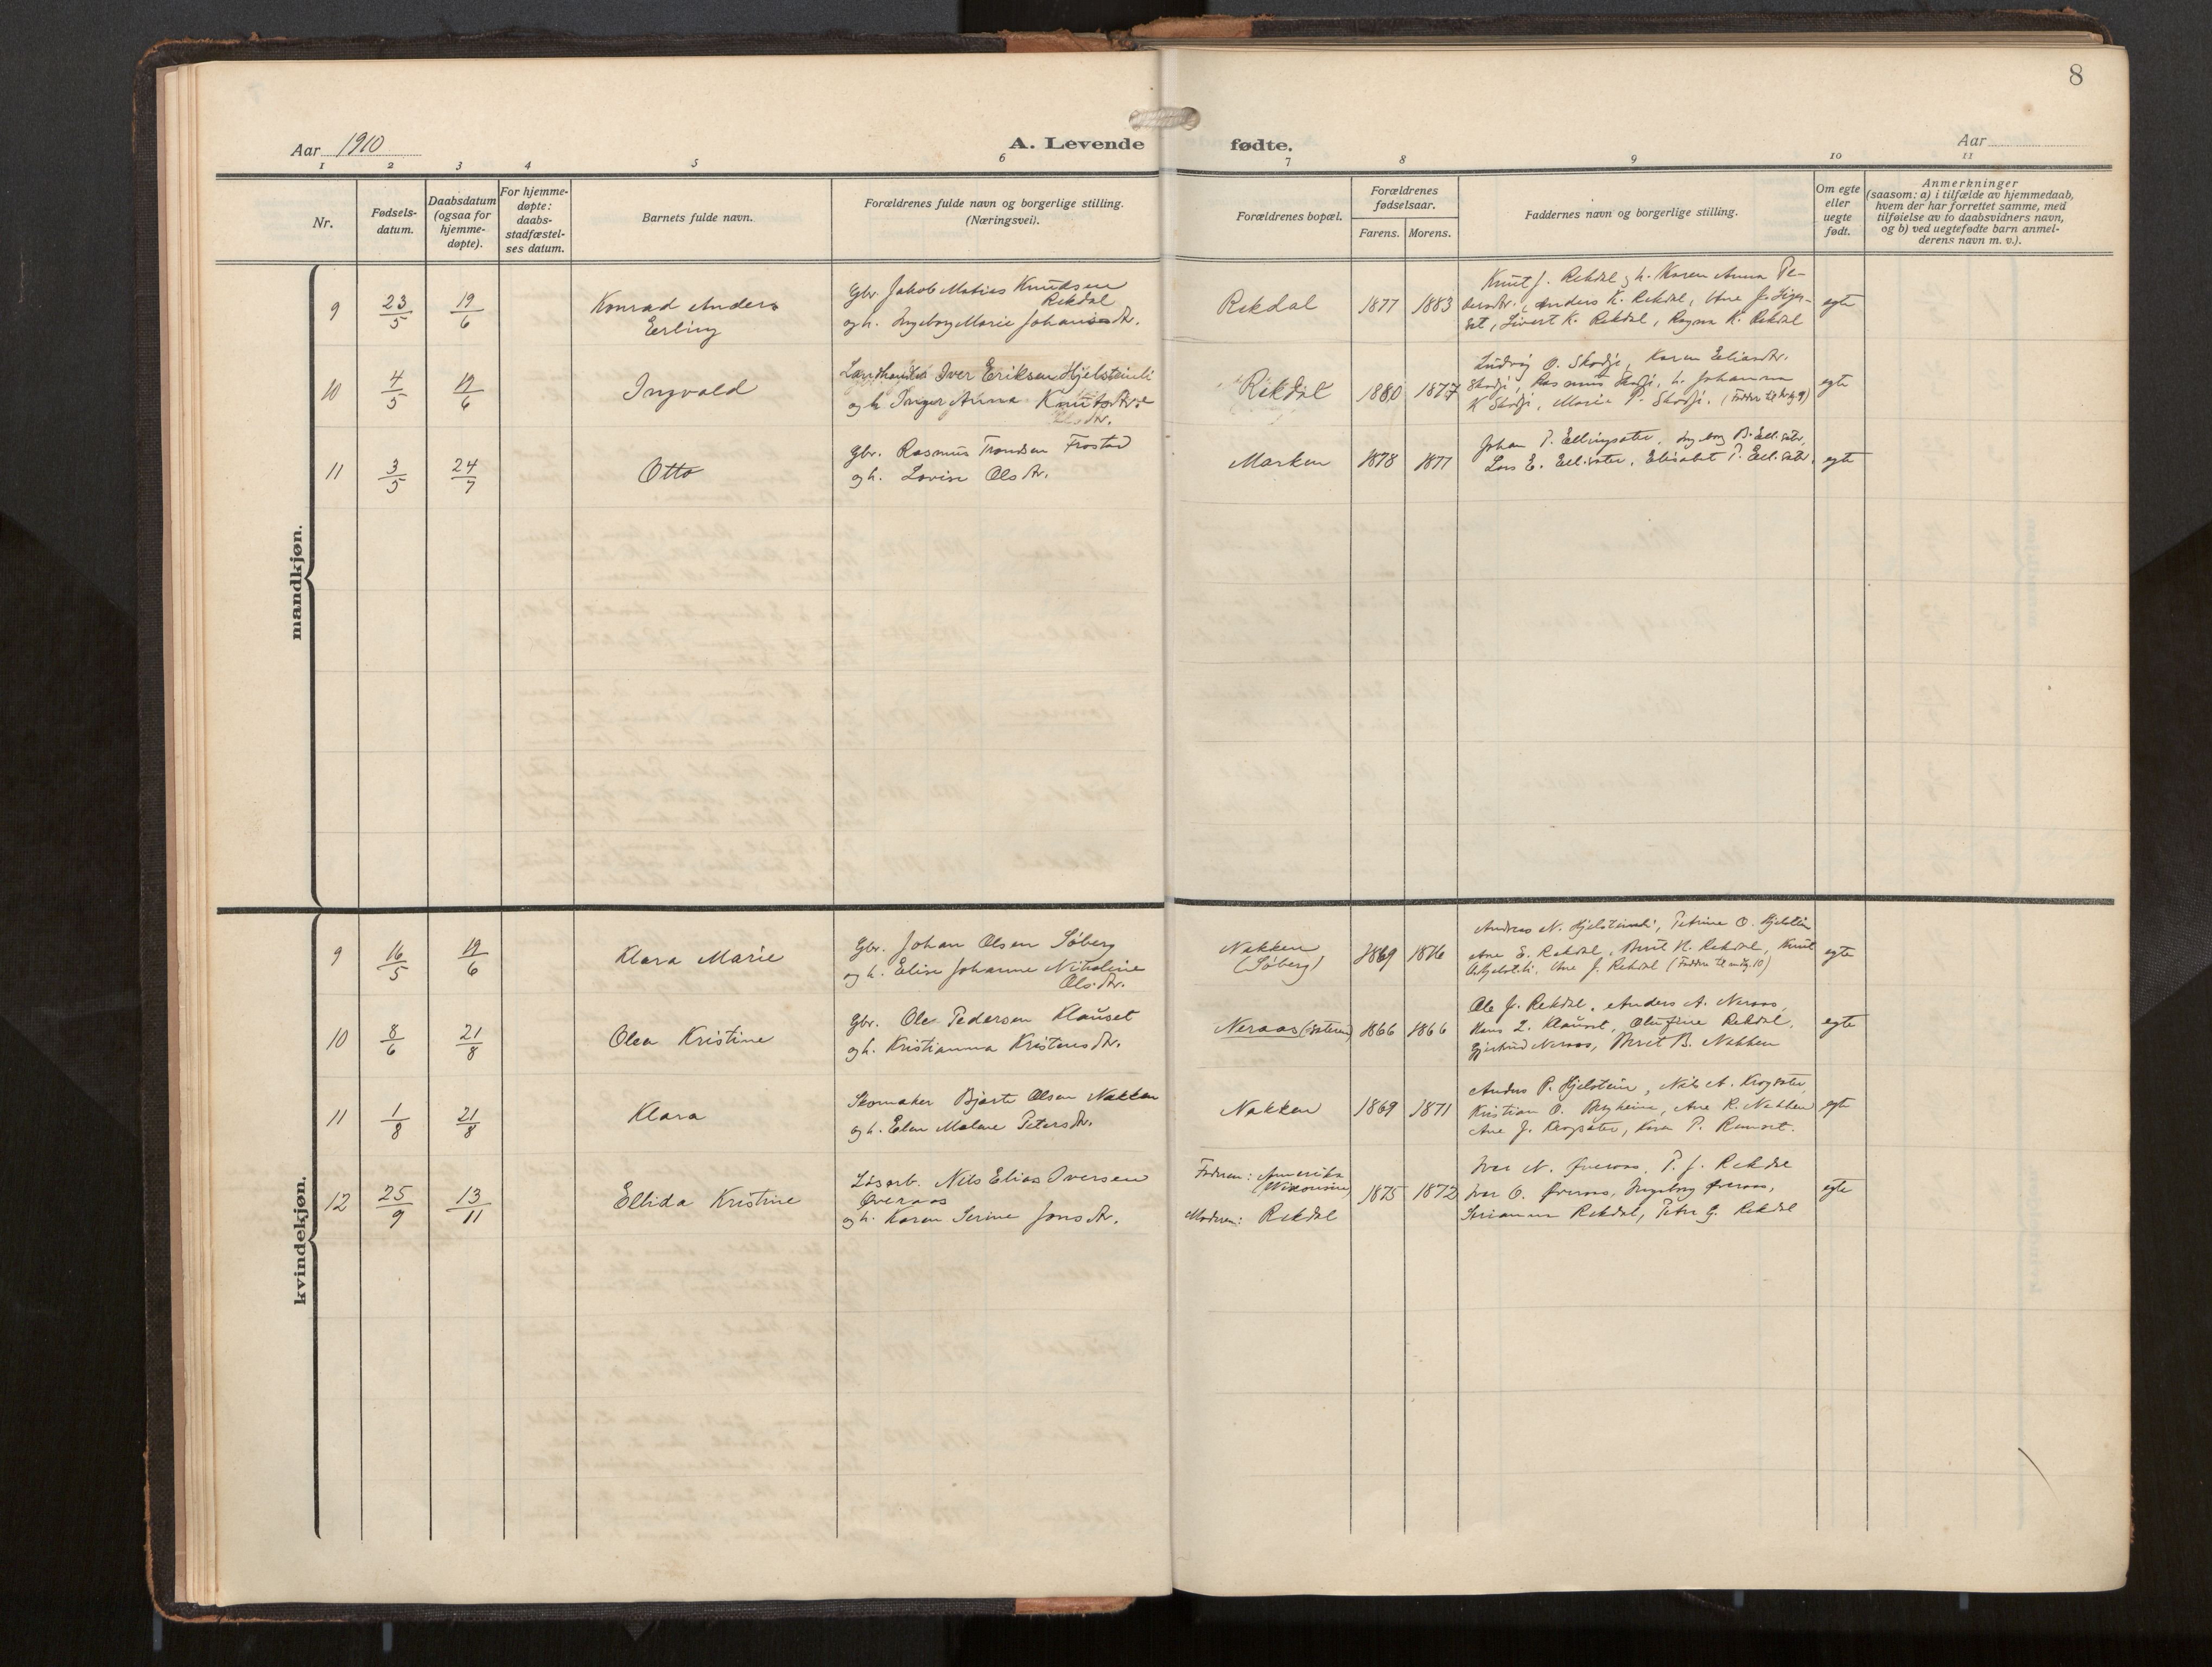 8
Aar 1910
A. Levende fødte.
Aar
1 2 3 4 5 6 7 8 9 10 11
Nr.
Fødsels-
datum.
Daabsdatum
(ogsaa for
hjemme-
døpte).
For hjemme-
døpte:
daabs-
stadfæstel-
ses datum.
Barnets fulde navn.
Forældrenes fulde navn og borgerlige stilling.
(Næringsvei).
Forældrenes bopæl.
Forældrenes
fødselsaar.
Farens. Morens.
Faddernes navn og borgerlige stilling.
Om egte
eller
uegte
født.
Anmerkninger
(saasom: a) i tilfælde av hjemmedaab,
hvem der har forrettet samme, med
tilføielse av to daabsvidners navn,
og b) ved uegtefødte barn anmel-
derens navn m. v.).
mandkjøn.
9 23/5 19/6
Konrad Anders
Erling
Gbr. Jakob Matias Knudsen
Rekdal
og h. Ingeborg Marie Johansdtr.
Rekdal 1877 1883
Knut J. Rekdal, h. Karen Anna Pe-
dersdtr., Anders K. Rekdal, Ane J.
Sivert K. Rekdal, Ragna K. Rekdal
egte
10 4/5 19/6
Ingvald
Landhandler Iver Eriksen Hjelsteinli
og h. Inger Anna Knutsdtr.
Rekdal 1880 1877
Ludvig O. Skodje, Karen Eliasdtr.
Skodje, Rasmus Skodje, h. Johanna
K Skodje, Marie P. Skodje.
egte
11 3/5 24/7
Otto
Gbr. Rasmus Trondsen Frostad
og h. Lovise Olsdtr.
Marken 1878 1877
Johan P. Ellingsæter, Ingeborg B. Ell.sæter,
Lars E. Ell.sæter, Elisabet P. Ell.sæter.
egte
kvindekjøn.
9 16/5 19/6
Klara Marie
Gbr. Johan Olsen Søberg
og h. Elise Johanne Nikoline
Olsdtr.
Nakken
(Søberg)
1869 1876
Andreas N. Hjelsteinli, Petrine O.
Ane E. Rekdal, Berit N. Rekdal, Knut
Ane J. Rekdal
egte
10 8/6 21/8
Olea Kristine
Gbr. Ole Pedersen Klauset
og h. Kristianna Kristensdtr.
Neraas (sæteren) 1866 1866
Ole J. Rekdal, Anders A. Neraas,
Hans L. Klauset, Olufine Rekdal,
Gjertrud Neraas, Berit B. Nakken
egte
11 1/8 21/8
Klara
Skomaker Bjarte Olsen Nakken
og h. Elen Malene Petersdtr.
Nakken 1869 1871
Anders P. Hjelstein, Nils A. Krogsæter,
Kristian O. Bergheim, Ane R. Nakken
Ane J. Krogsæter, Kara P.
egte
12 25/9 13/11
Ellida Kristine
Løsarb. Nils Elias Iversen
Øveraas
og h. Karen Serine Jonsdtr.
Faderen: Amerika
(Wisconsin)
Moderen: Rekdal
1875 1872
Ivar N. Øveraas, P. J. Rekdal
Ivar O. Øveraas, Ingeborg Øveraas,
Serianna Rekdal, Peter G. Rekdal
egte